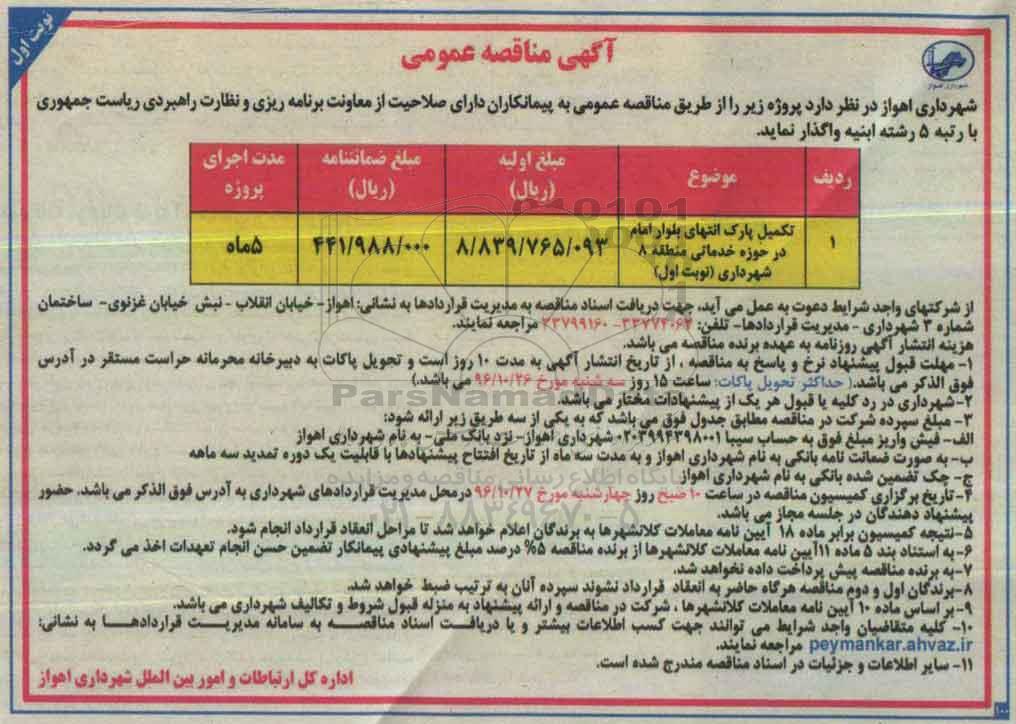 نوبت اول
شهرداری اهواز
آگهی مناقصه عمومی
شهرداری اهواز در نظر دارد پروژه زیر را از طریق مناقصه عمومی به پیمانکاران دارای صلاحیت از معاونت برنامه ریزی و نظارت راهبردی ریاست جمهوری
با رتبه ۵ رشته ابنیه واگذار نماید.
ردیف موضوع مبلغ اولیه (ریال) مبلغ ضمانتنامه (ریال) مدت اجرای پروژه
۱ تکمیل پارک انتهای بلوار امام در حوزه خدماتی منطقه ۸ شهرداری (نوبت اول) ۸/۸۳۹/۷۶۵/۰۹۳ ۴۴۱/۹۸۸/۰۰۰ ۵ماه
از شرکتهای واجد شرایط دعوت به عمل می آید، جهت دریافت اسناد مناقصه به مدیریت قراردادها به نشانی: اهواز- خیابان انقلاب - نبش خیابان غزنوی- ساختمان
شماره ۳ شهرداری - مدیریت قراردادها- تلفن: ۳۳۷۷۴۰۶۴- ۳۳۷۹۹۱۶۰ مراجعه نمایند.
هزینه انتشار آگهی روزنامه به عهده برنده مناقصه می باشد.
۱- مهلت قبول پیشنهاد نرخ و پاسخ به مناقصه ، از تاریخ انتشار آگهی به مدت ۱۰ روز است و تحویل پاکات به دبیرخانه محرمانه حراست مستقر در آدرس
فوق الذکر می باشد.( حداکثر تحویل پاکات: ساعت ۱۵ روز سه شنبه مورخ ۹۶/۱۰/۲۶ می باشد.)
۲-شهرداری در رد کلیه یا قبول هر یک از پیشنهادات مختار می باشد.
۳- مبلغ سپرده شرکت در مناقصه مطابق جدول فوق می باشد که به یکی از سه طریق زیر ارائه شود:
الف- فیش واریز مبلغ فوق به حساب سیبا ۰۲۰۳۹۹۴۳۹۸۰۰۱ شهرداری اهواز- نزد بانک ملی- به نام شهرداری اهواز
ب- به صورت ضمانت نامه بانکی به نام شهرداری اهواز و به مدت سه ماه از تاریخ افتتاح پیشنهادها با قابلیت یک دوره تمدید سه ماهه
ج- چک تضمین شده بانکی به نام شهرداری اهواز
۴-تاریخ برگزاری کمیسیون مناقصه در ساعت ۱۰ صبح روز چهارشنبه مورخ ۹۶/۱۰/۲۷ درمحل مدیریت قراردادهای شهرداری به آدرس فوق الذکر می باشد. حضور
پیشنهاد دهندگان در جلسه مجاز می باشد.
۵-نتیجه کمیسیون برابر ماده ۱۸ آیین نامه معاملات کلانشهرها به برندگان اعلام خواهد شد تا مراحل انعقاد قرارداد انجام شود.
۶-به استناد بند ۵ ماده ۱۱آیین نامه معاملات کلانشهرها از برنده مناقصه ۵% درصد مبلغ پیشنهادی پیمانکار تضمین حسن انجام تعهدات اخذ می گردد.
۷-به برنده مناقصه پیش پرداخت داده نخواهد شد.
۸-برندگان اول و دوم مناقصه هرگاه حاضر به انعقاد قرارداد نشوند سپرده آنان به ترتیب ضبط خواهد شد.
۹-بر اساس ماده ۱۰ آیین نامه معاملات کلانشهرها ، شرکت در مناقصه و ارائه پیشنهاد به منزله قبول شروط و تکالیف شهرداری می باشد.
۱۰- کلیه متقاضیان واجد شرایط می توانند جهت کسب اطلاعات بیشتر و یا دریافت اسناد مناقصه به سامانه مدیریت قراردادها به نشانی:
peymankar.ahvaz.ir مراجعه نمایند.
۱۱- سایر اطلاعات و جزئیات در اسناد مناقصه مندرج شده است.
اداره کل ارتباطات و امور بین الملل شهرداری اهواز
۱۰۰